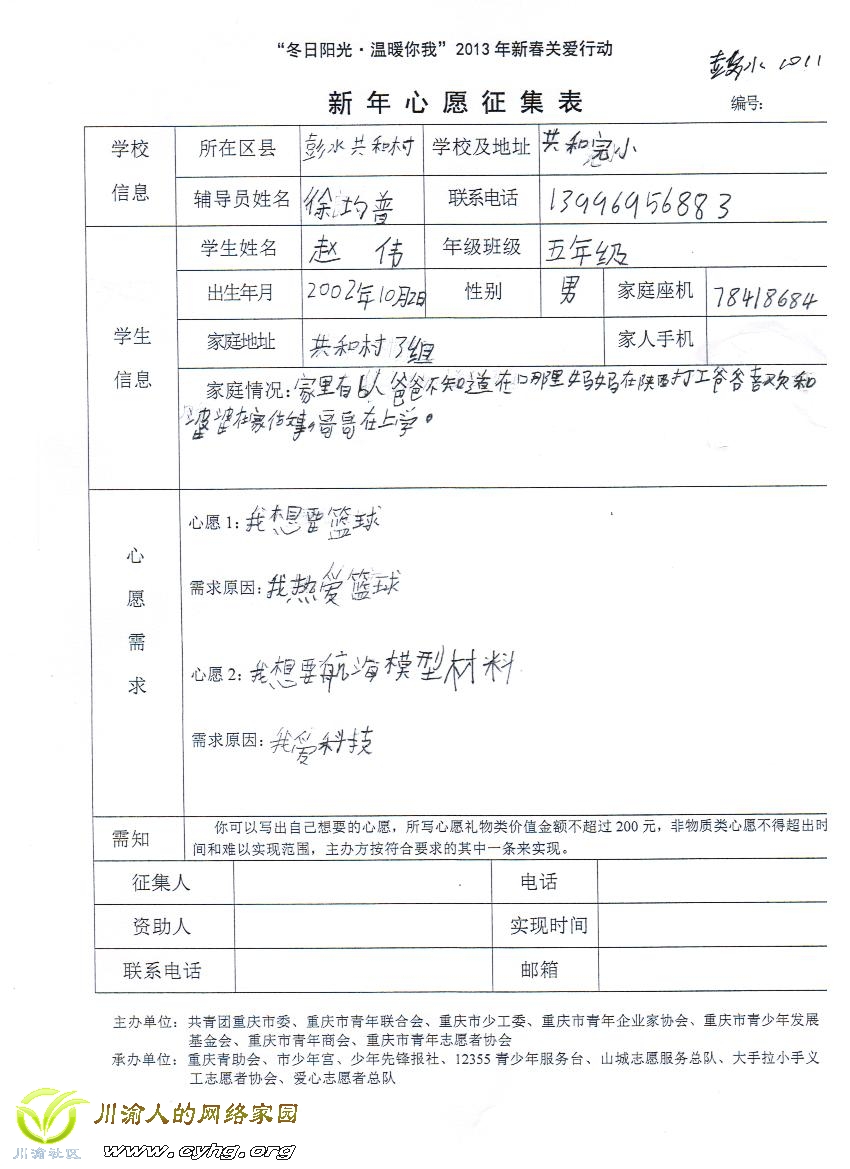 “冬日阳光·温暖你我”2013年新春关爱行动
彭水 1011
新年心愿征集表
编号：
学校信息 所在区县 彭水共和村 学校及地址 共和完小
辅导员姓名 徐均普 联系电话 13996956883
学生信息 学生姓名 赵 伟 年级班级 五年级
出生年月 2002年10月2日 性别 男 家庭座机 78418684
家庭地址 共和村3组 家人手机
家庭情况：家里有6人爸爸不知道在哪里妈妈在陕西打工爷爷喜欢和
婆婆在家做事，哥哥在上学。
心愿需求
心愿1：我想要篮球
需求原因：我热爱篮球
心愿2：我想要航海模型材料
需求原因：我爱科技
需知 你可以写出自己想要的心愿，所写心愿礼物类价值金额不超过200元，非物质类心愿不得超出时
间和难以实现范围，主办方按符合要求的其中一条来实现。
征集人 电话
资助人 实现时间
联系电话 邮箱
主办单位：共青团重庆市委、重庆市青年联合会、重庆市少工委、重庆市青年企业家协会、重庆市青少年发展
基金会、重庆市青年商会、重庆市青年志愿者协会
承办单位：重庆青助会、市少年宫、少年先锋报社、12355青少年服务台、山城志愿服务总队、大手拉小手义
工志愿者协会、爱心志愿者总队
川渝人的网络家园
川渝社区 www.cyhg.org